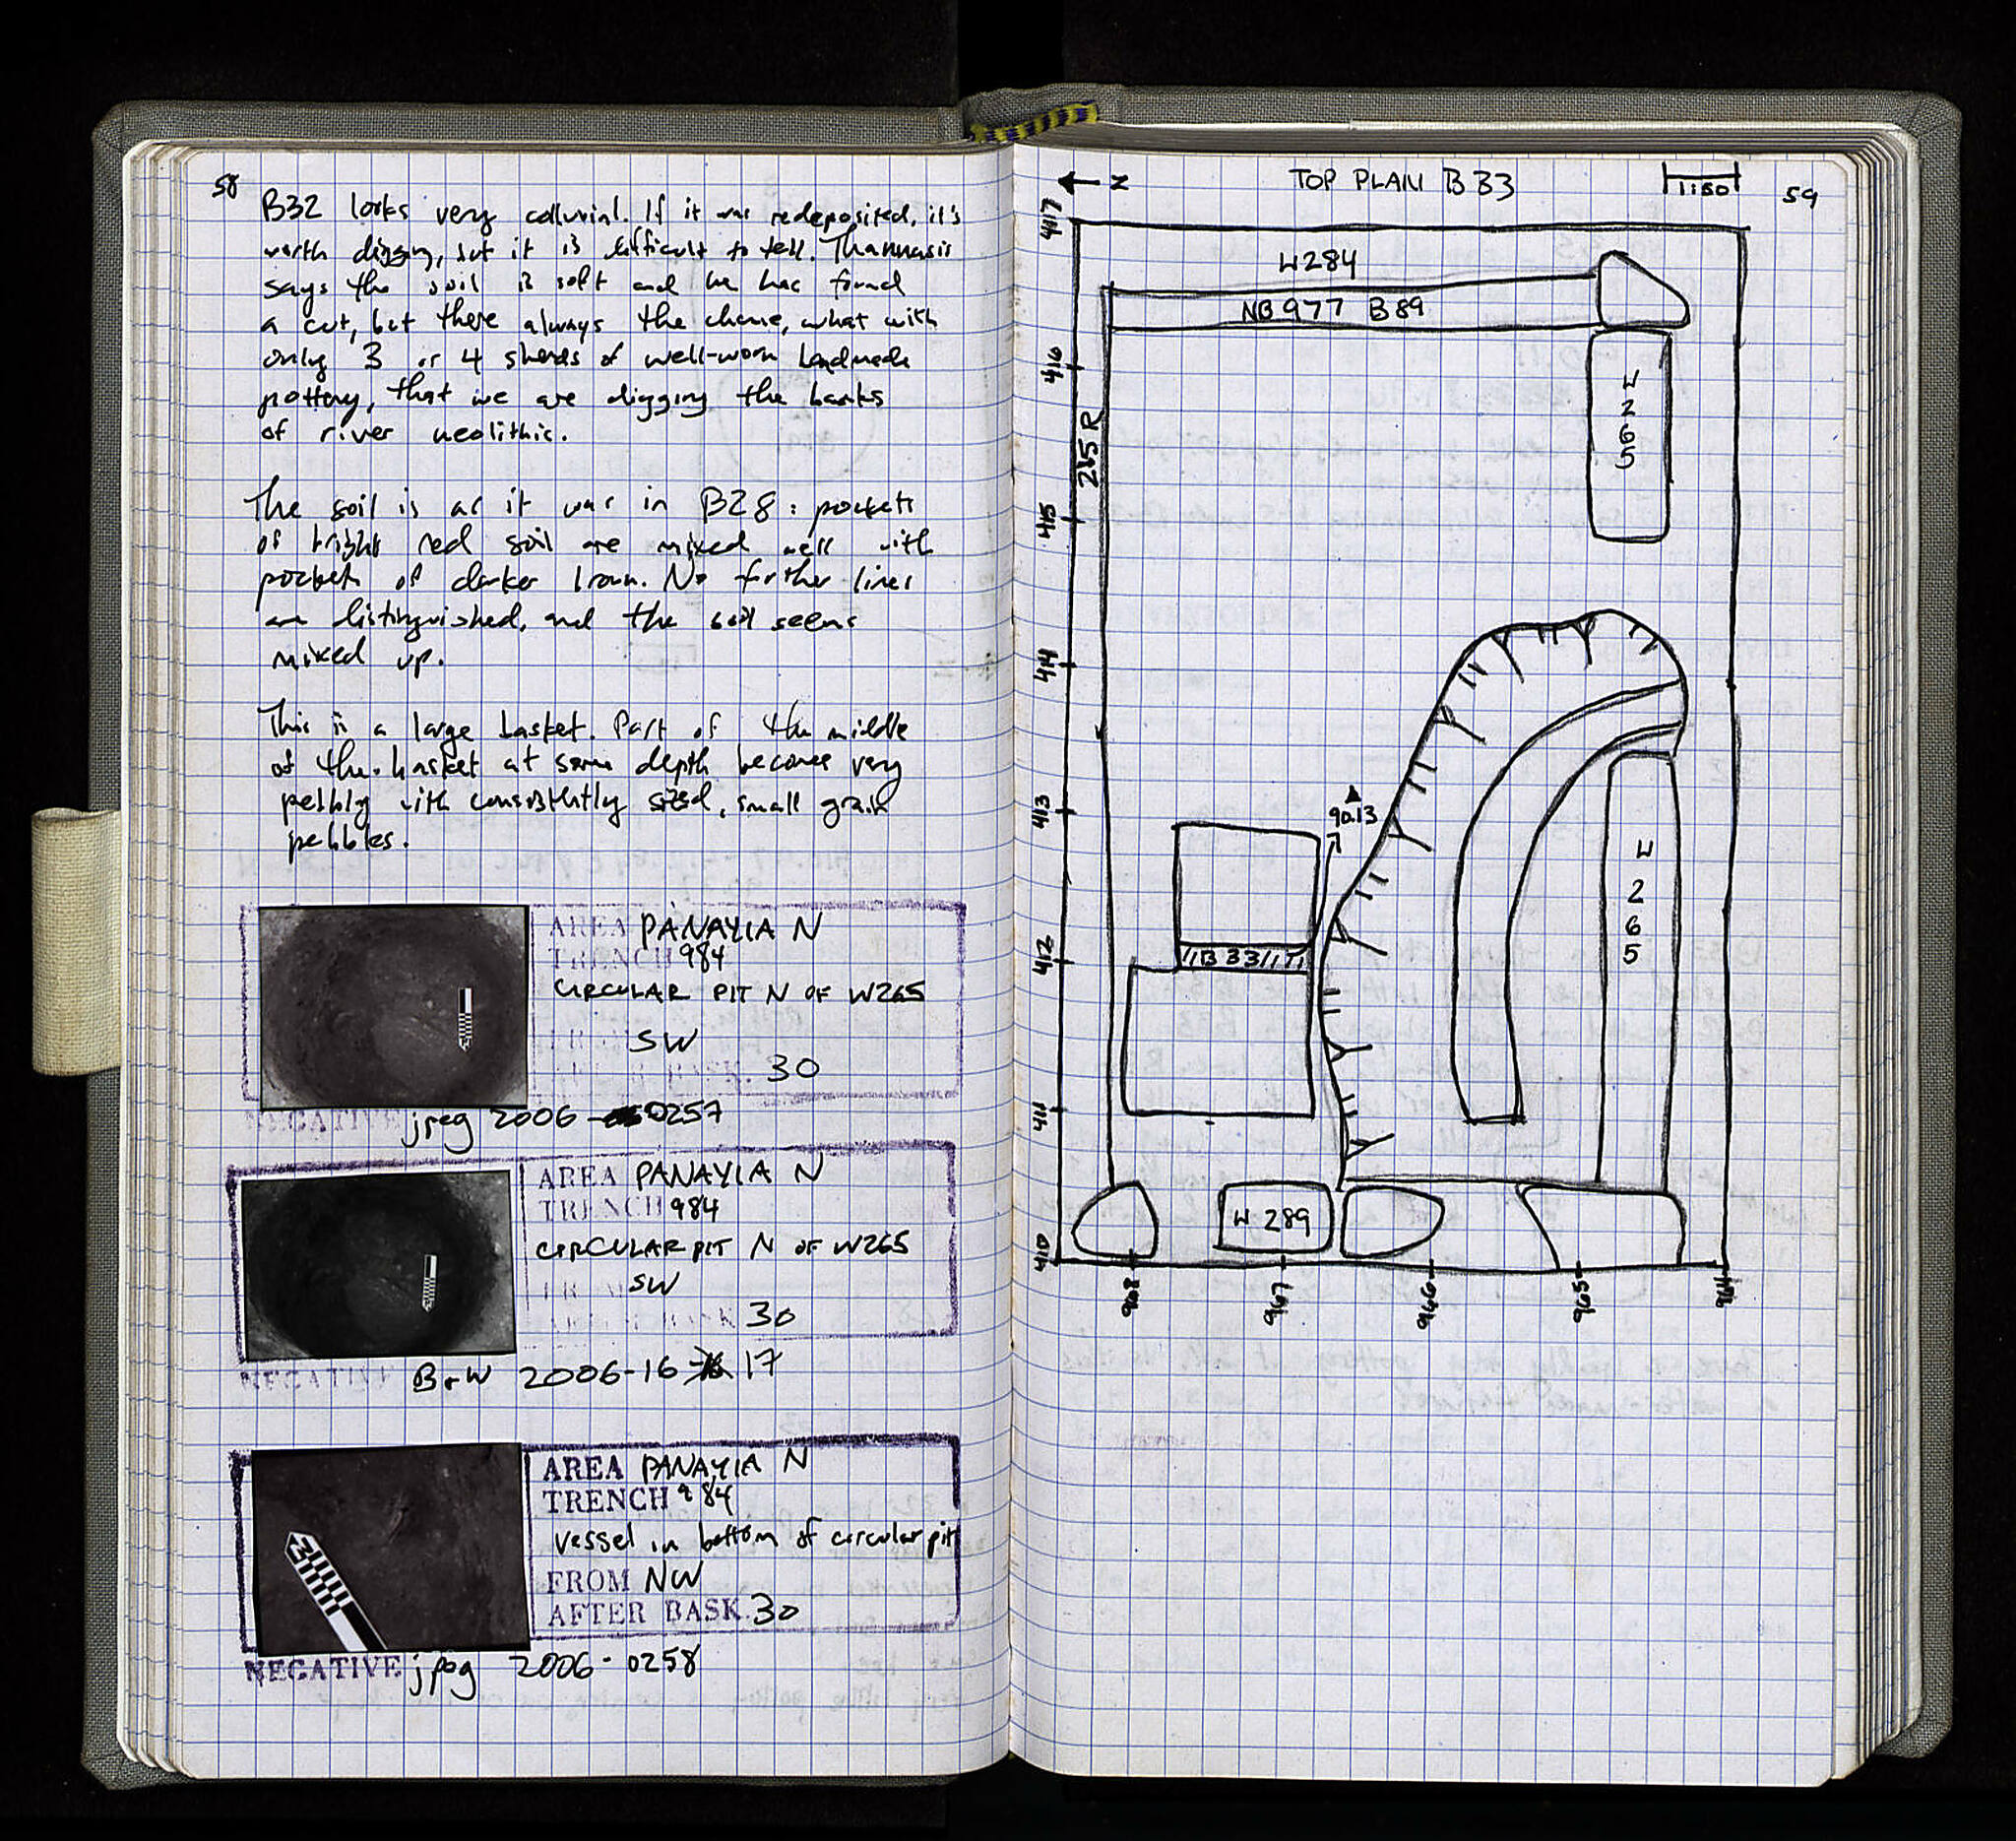 58
B32 looks very colluvial. If it was redeposited, it's
worth digging, but it is difficult to tell. Thannasis
says the soil is soft and he has found
a cut, but there always the chance, what with
only 3 or 4 sherds of well-worn handmade
pottery, that we are digging the banks
of river neolithic.
The soil is as it was in B28: pockets
of bright red soil are mixed well with
pockets of darker brown. No further lines
are distinguished, and the soil seems
mixed up.
This is a large basket. Part of the middle
of the basket at some depth becomes very
pebbly with consistently sized, small grain
pebbles.
AREA PANAYIA N
TRENCH 984
CIRCULAR PIT N OF W265
FROM SW
AFTER BASK. 30
NEGATIVE jpeg 2006 - 0257
AREA PANAYIA N
TRENCH 984
CIRCULAR PIT N OF W265
FROM SW
AFTER BASK. 30
NEGATIVE B+W 2006-16-17
AREA PANAYIA N
TRENCH 984
vessel in bottom of circular pit
FROM NW
AFTER BASK. 30
NEGATIVE jpeg 2006-0258
N
TOP PLAN B33
1:50
59
417
W284
NB 977 B89
416
W
2
6
5
285 R
415
414
413
90.13
W
2
6
5
412
B33
411
W 289
410
968
967
966
965
964